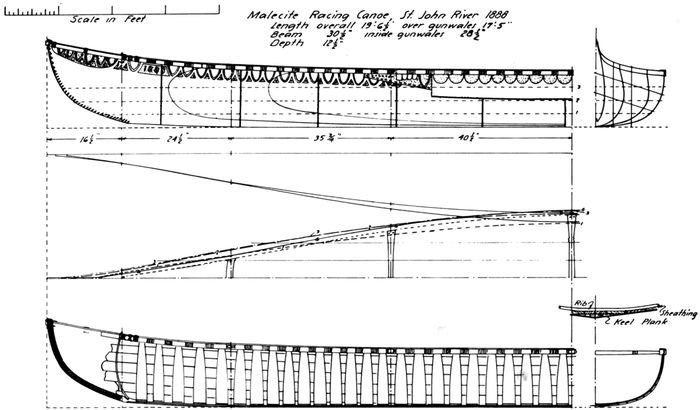 Scale in Feet
Malecite Racing Canoe, St. John River 1888
Length overall 19'-6½" over gunwales 17'-5"
Beam 30½" inside gunwales 28½"
Depth 12½"
3
2
1
16½"
24½"
35¾"
40½"
3
2
1
Rib
Sheathing
Keel Plank